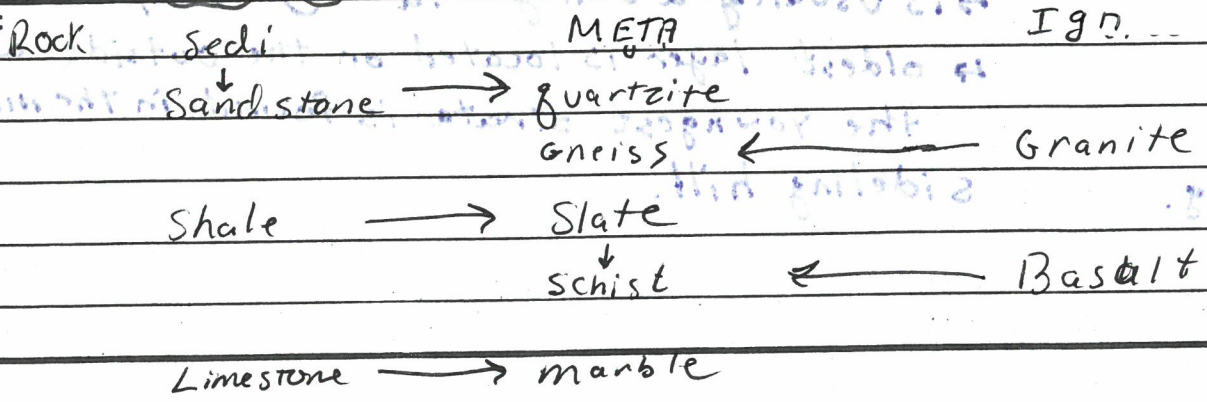 Rock Sedi META Ign...
↓
Sandstone → quartzite
Gneiss ← Granite
Shale → Slate
↓
Schist ← Basalt
Limestone → marble